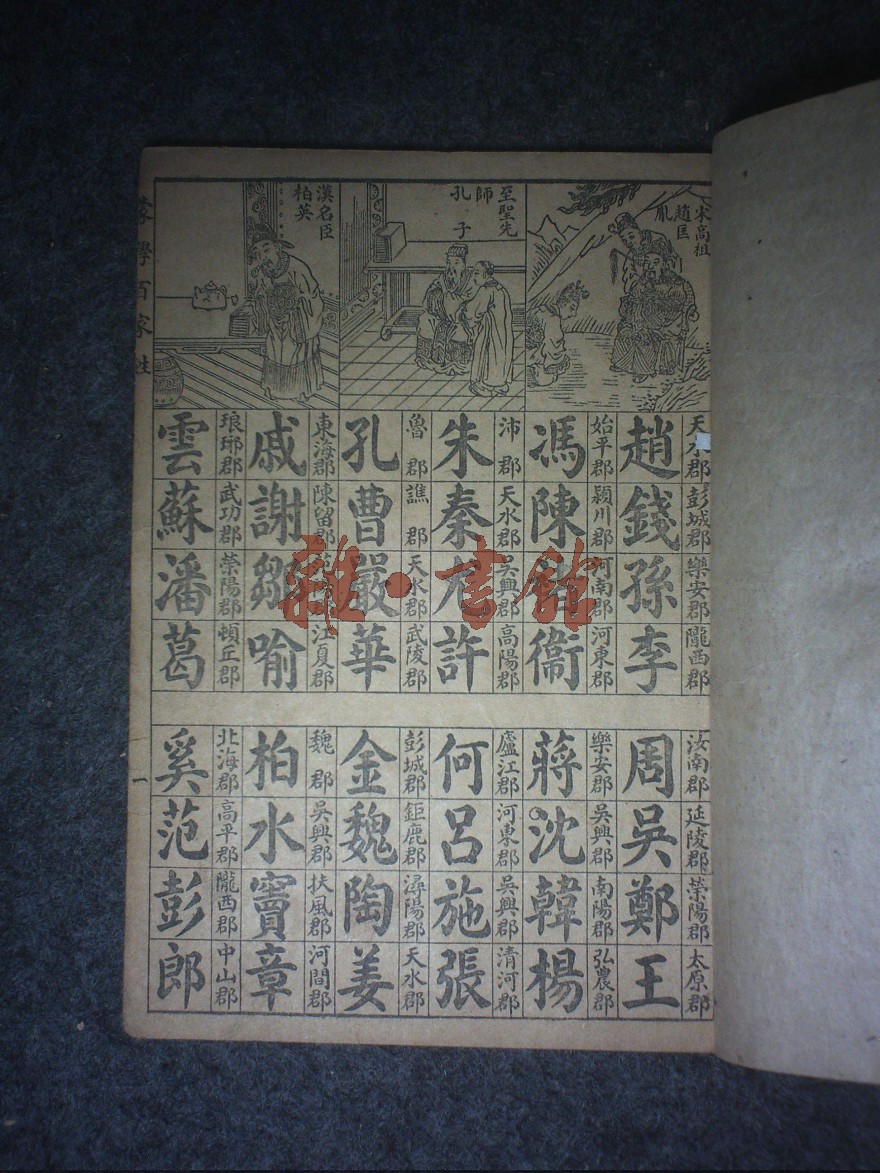 宋高祖
趙匡
胤
至聖先
師
孔
子
漢名臣
柏英
天水郡 彭城郡 樂安郡 隴西郡
趙 錢 孫 李
始平郡 潁川郡 河南郡 河東郡
馮 陳 褚 衞
沛郡 天水郡 吳興郡 高陽郡
朱 秦 尤 許
魯郡 譙郡 天水郡 武陵郡
孔 曹 嚴 華
東海郡 陳留郡 江夏郡
戚 謝 鄒 喻
琅琊郡 武功郡 榮陽郡 頓丘郡
雲 蘇 潘 葛
汝南郡 延陵郡 榮陽郡 太原郡
周 吳 鄭 王
樂安郡 吳興郡 南陽郡 弘農郡
蔣 沈 韓 楊
廬江郡 河東郡 吳興郡 清河郡
何 呂 施 張
彭城郡 鉅鹿郡 潯陽郡 天水郡
金 魏 陶 姜
魏郡 吳興郡 扶風郡 河間郡
柏 水 竇 章
北海郡 高平郡 隴西郡 中山郡
奚 范 彭 郎
蒙學百家姓
一
雜·書館